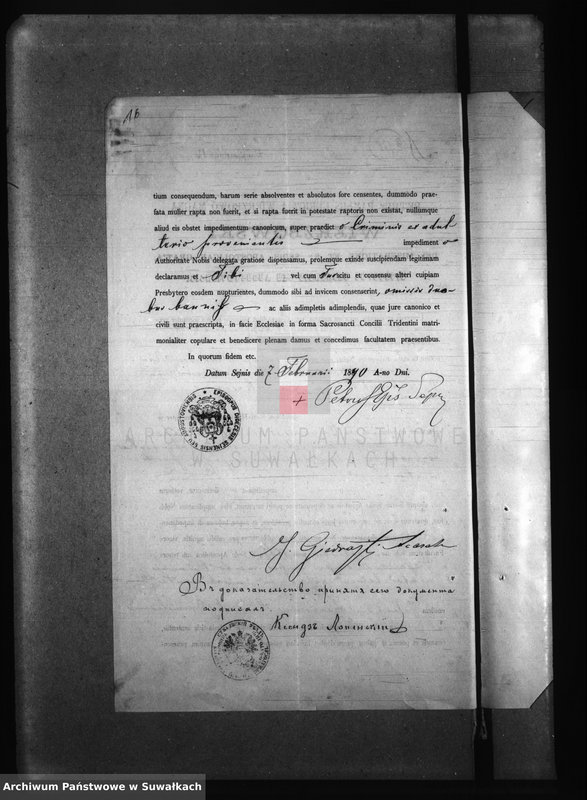 16
tium consequendum, harum serie absolventes et absolutos fore censentes, dummodo prae-
fata mulier rapta non fuerit, et si rapta fuerit in potestate raptoris non existat, nullumque
aliud eis obstet impedimentum canonicum, super praedict o Criminis ex adul
terio provenientis impediment o
Authoritate Nobis delegata gratiose dispensamus, prolemque exinde suscipiendam legitimam
declaramus et Tibi vel cum Tuo scitu et consensu alteri cuipiam
Presbytero eosdem nupturientes, dummodo sibi ad invicem consenserint, omissis dua
bus bannis ac aliis adimpletis adimplendis, quae jure canonico et
civili sunt praescripta, in facie Ecclesiae in forma Sacrosancti Concilii Tridentini matri-
monialiter copulare et benedicere plenam damus et concedimus facultatem praesentibus.
In quorum fidem etc.
Datum Sejnis die 7 Februarii 1890 A-no Dni.
+ Petrus
ARCHIWUM PAŃSTWOWE
W SUWAŁKACH
Въ доказательство принятія сего документа
подписалъ
Ксендзъ
Archiwum Państwowe w Suwałkach